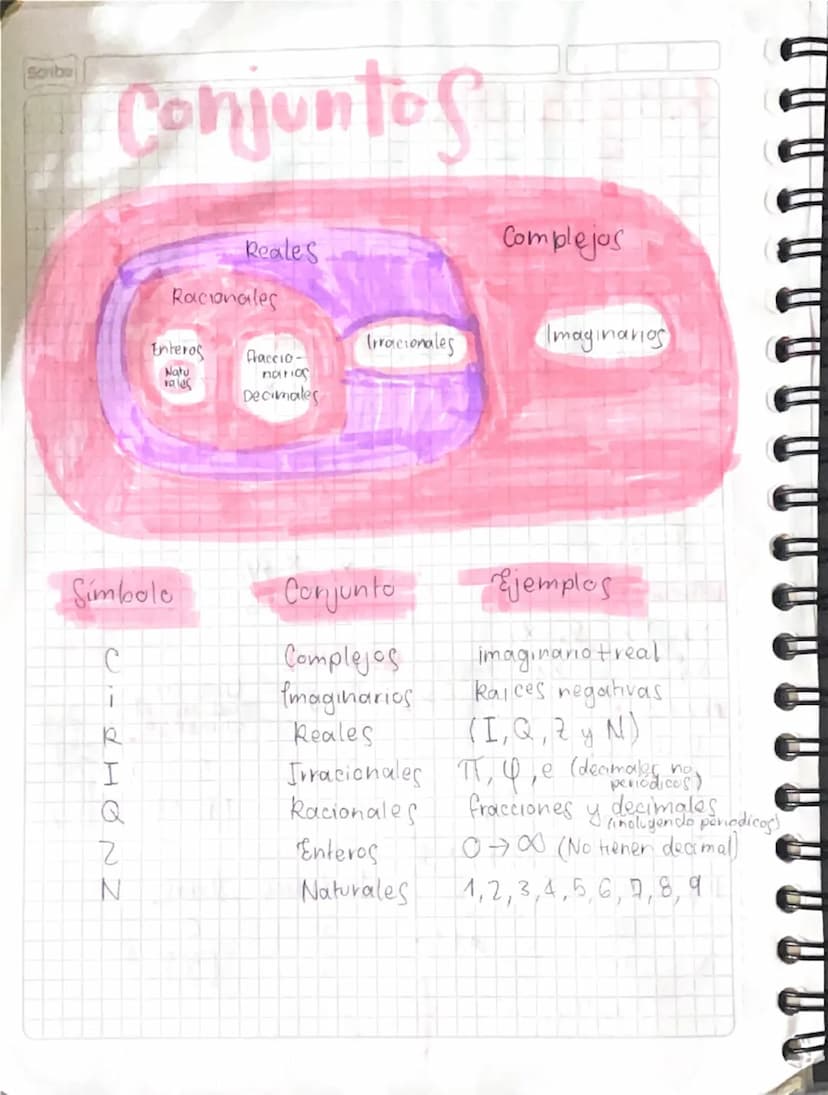 Scribe
Conjuntos
Reales
Complejos
Racionales
Imaginarios
Irracionales
Enteros
Natu
rales
Fraccio-
narios
Decimales
Símbolo Conjunto Ejemplos
C Complejos imaginario+real
i Imaginarios Raices negativas
R Reales (I, Q, Z y N)
I Irracionales π, φ, e (decimales no
periódicos)
Q Racionales fracciones y decimales
(incluyendo periodicos)
Z Enteros 0→∞ (No tienen decimal)
N Naturales 1, 2, 3, 4, 5, 6, 7, 8, 9